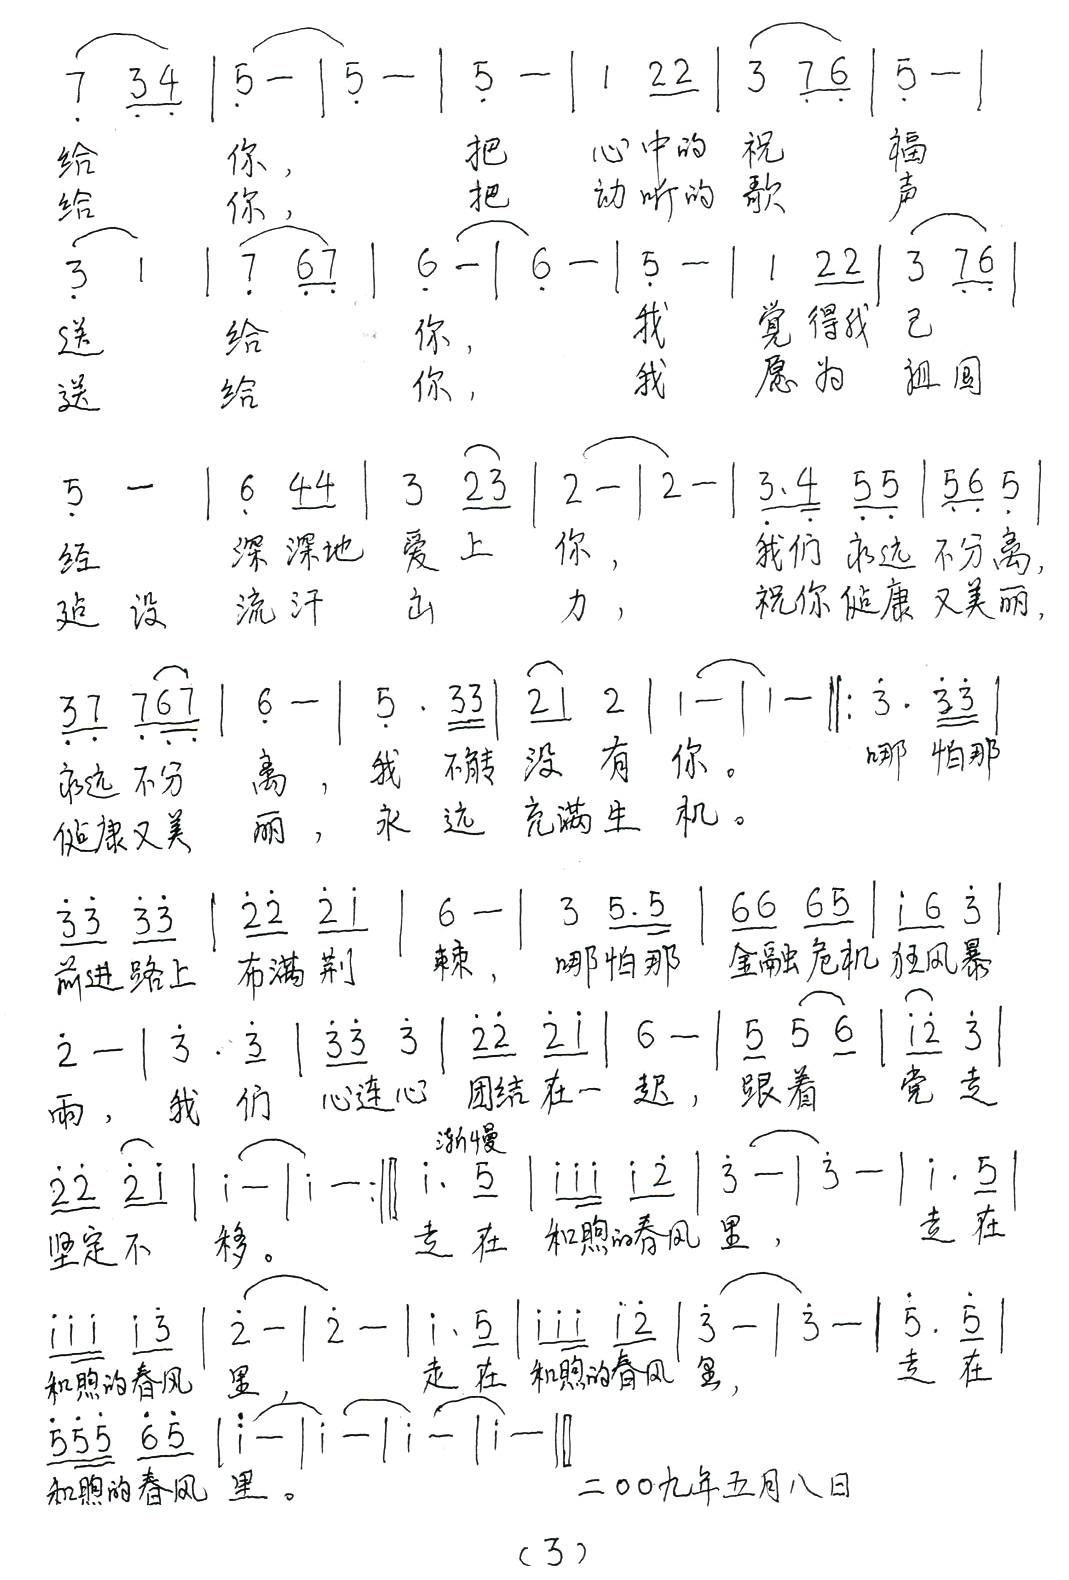 7 34 | 5 — | 5 — | 5 — | 1 22 | 3 76 | 5 — |
给 你， 把 心中的 祝 福
给 你， 把 动听的 歌 声
3 1 | 7 67 | 6 — | 6 — | 5 — | 1 22 | 3 76 |
送 给 你， 我 觉得我 已
送 给 你， 我 愿为 祖国
5 — | 6 44 | 3 23 | 2 — | 2 — | 3.4 55 | 56 5 |
经 深深地 爱上 你， 我们永远 不分离，
建设 流汗 出 力， 祝你健康 又美丽，
37 767 | 6 — | 5 . 33 | 21 2 | 1 — | 1 — ‖: 3 . 33 |
永远不分 离， 我 不能 没有 你。 哪 怕那
健康又美 丽， 永 远 充满生 机。
33 33 | 22 21 | 6 — | 3 5.5 | 66 65 | i6 3 |
前进路上 布满荆 棘， 哪怕那 金融危机 狂风暴
2 — | 3 . 3 | 33 3 | 22 21 | 6 — | 5 5 6 | i2 3 |
雨， 我 们 心连心 团结在一 起， 跟着 党 走
渐慢
22 2i | i — | i — :‖ i. 5 | iii i2 | 3 — | 3 — | i. 5 |
坚定不 移。 走在 和煦的春风 里， 走在
iii i3 | 2 — | 2 — | i. 5 | iii i2 | 3 — | 3 — | 5. 5 |
和煦的春风 里， 走在 和煦的春风 里， 走在
555 65 | i — | i — | i — | i — ‖
和煦的春风 里。 二00九年五月八日
(3)